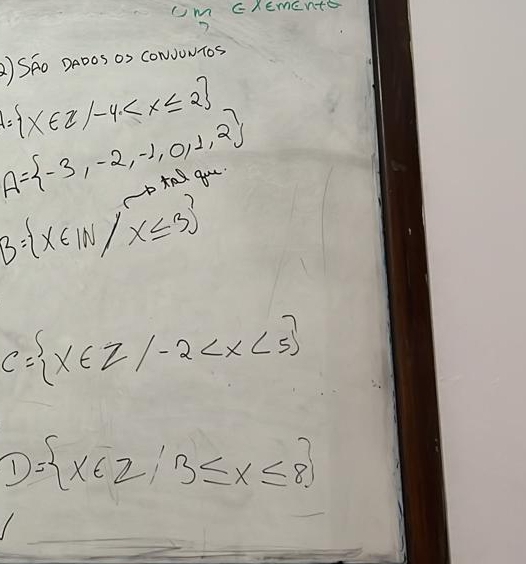 um Exemento
2) SÃO DADOS OS CONJUNTOS
A={X∈Z/-4<x≤2}
A={-3,-2,-1,0,1,2}
tal que.
B={X∈IN/X≤3}
C={X∈Z/-2<x<5}
D={X∈Z/3≤x≤8}